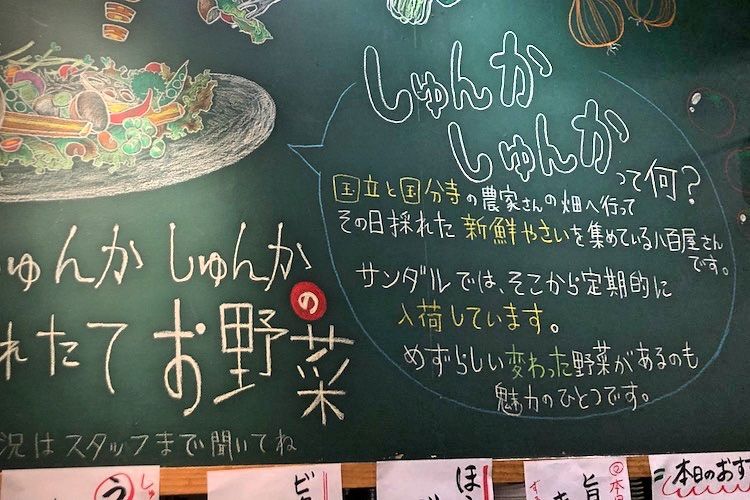 しゅんか
しゅんか
って何?
国立と国分寺の農家さんの畑へ行って
その日採れた新鮮やさいを集めている八百屋さん
です。
サンダルでは、そこから定期的に
入荷しています。
めずらしい変わった野菜があるのも
魅力のひとつです。
しゅんかしゅんか
の
れたてお野菜
況はスタッフまで聞いてね
本日のおす